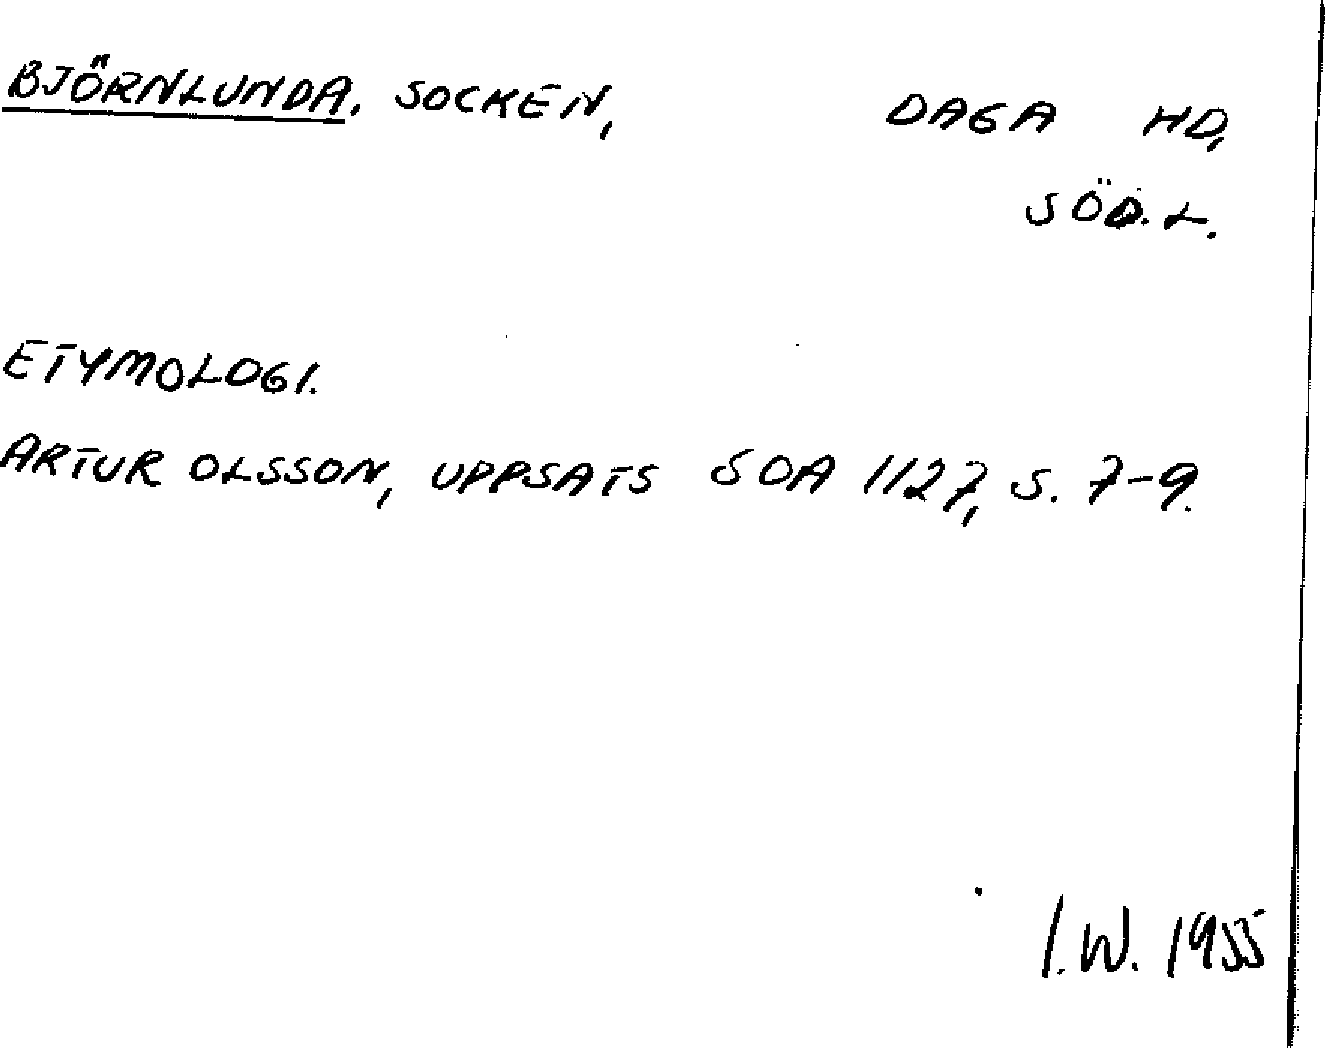 BJÖRNLUNDA. SOCKEN, DAGA HD,
SÖD. L.
ETYMOLOGI.
ARTUR OLSSON, UPPSATS SOA 1127, S. 7-9.
I.W. 1955